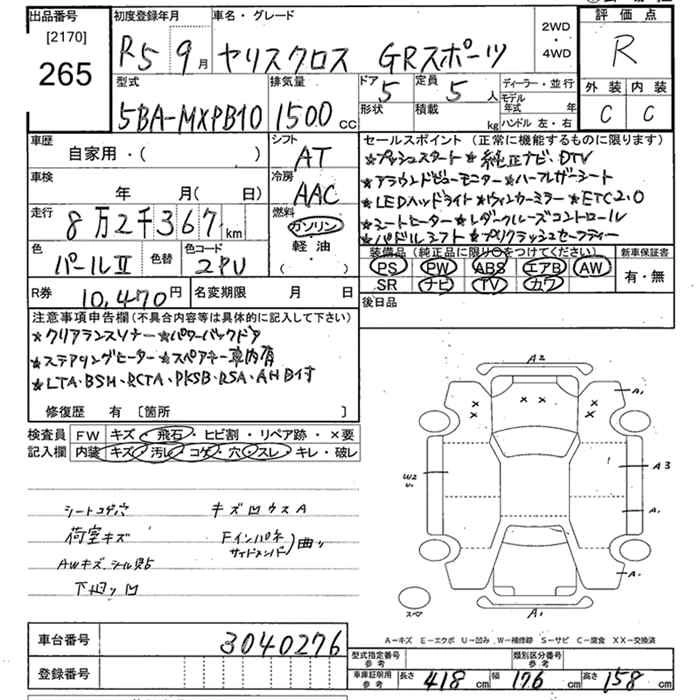 出品番号 初度登録年月 車名・グレード 2WD ・ 4WD 評価点
[2170]
265 R5 9月 ヤリスクロス GRスポーツ R
型式 排気量 ドア 5 定員 5人 ディーラー・並行 外装 内装
5BA-MXPB10 1500cc 形状 積載 kg モデル年式 年 C C
ハンドル 左・右
車歴 自家用・( ) シフト AT セールスポイント(正常に機能するものに限ります)
★プッシュスタート★純正ナビ、DTV
車検 年 月( 日) 冷房 AAC ★アラウンドビューモニター★ハーフレザーシート
★LEDヘッドライト★ウィンカーミラー★ETC2.0
走行 8万2千367km 燃料 ガソリン 軽油 ( ・ ) ★シートヒーター★レーダクルーズコントロール
★パドルシフト★プリクラッシュセーフティー
色 パールⅡ 色替 色コード 2PU 装備品(純正品に限り○をつけてください) 新車保証書
PS PW ABS エアB AW 有・無
SR ナビ TV カワ
R券 10,470円 名変期限 月 日 後日品
注意事項申告欄(不具合内容等は具体的に記入して下さい)
★クリアランスソナー★パワーバックドア
★ステアリングヒーター★スペアキー車内有
★LTA・BSM・RCTA・PKSB・RSA・AHB付
修復歴 有 [箇所 ]
検査員 FW キズ・飛石・ヒビ割・リペア跡・×要
記入欄 内装 キズ・汚レ・コゲ・穴・スレ・キレ・破レ
シートコゲ穴 キズ凹ウスA
荷室キズ Fインパネ サイドメンバー)曲り
AWキズ、シール貼
下廻り凹
A2
A1
x x x x x x
W2
A3
A1
A1
スペア
A1
A−キズ E−エクボ U−凹み W−補修跡 S−サビ C−腐食 XX−交換済
車台番号 3040276
型式指定番号 参考 類別区分番号 参考
登録番号 車庫証明用 参考 長さ 418cm 幅 176cm 高さ 158cm